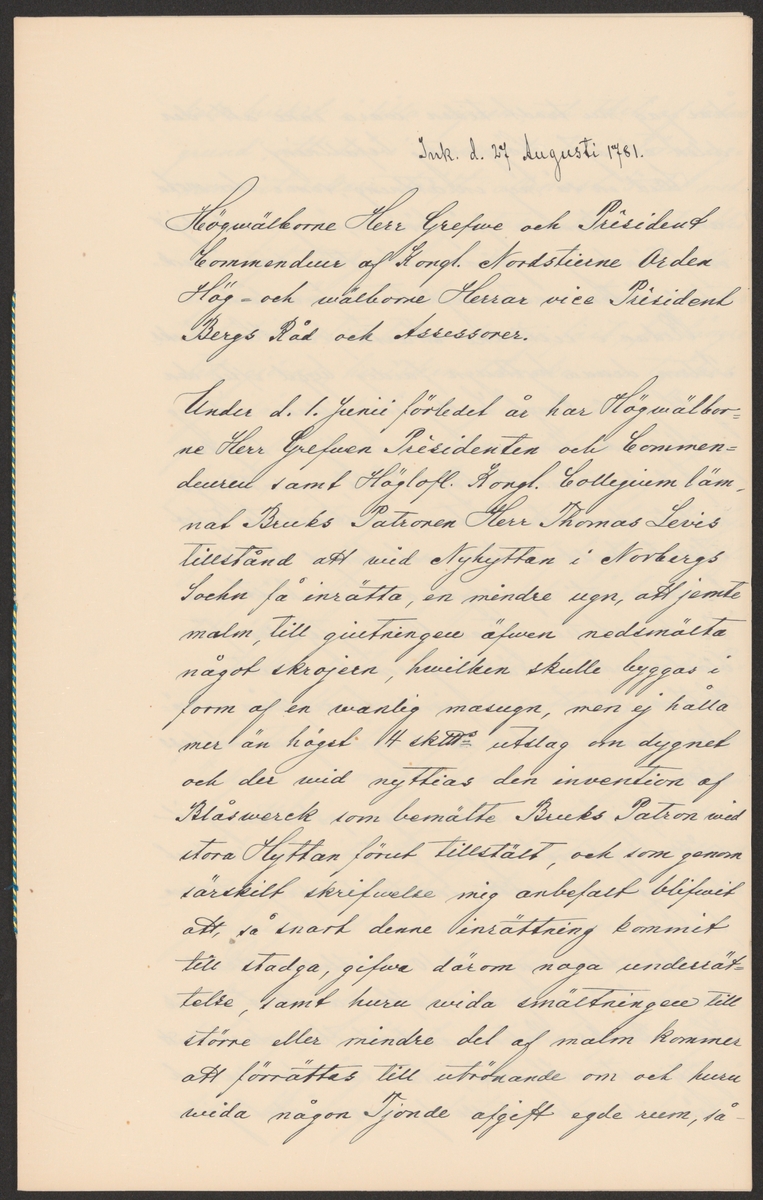 Ink. d. 27 Augusti 1781.
Högwälborne Herr Grefwe och Præsident
Commendeur af Kongl. Nordstierne Orden
Hög- och wälborne Herrar vice Præsident
Bergs Råd och Assessorer.
Under d. 1. Junii förledet år har Högwälbor=
ne Herr Grefwen Præsidenten och Commen=
deuren samt Höglofl. Kongl. Collegium läm-
nat Bruks Patronen Herr Thomas Levis
tillstånd att wid Nyhyttan i Norbergs
Sochn få inrätta, en mindre ugn, att jemte
malm, till giutningen äfwen nedsmälta
något skrojern, hwilken skulle byggas i
form af en wanlig masugn, men ej hålla
mer än högst 14 utslag om dygnet
och der wid nyttias den invention af
Blåswerck som bemälte Bruks Patron wid
stora Hyttan förut tillstält, och som genom
särskilt skrifwelse mig anbefalt blifwit
att, så snart denne inrättning kommit
till stadga, gifwa därom noga underrät=
telse, samt huru wida smältningen till
större eller mindre del af malm kommer
att förrättas till utrönande om och huru
wida någon Tjonde afgift egde rum, så-